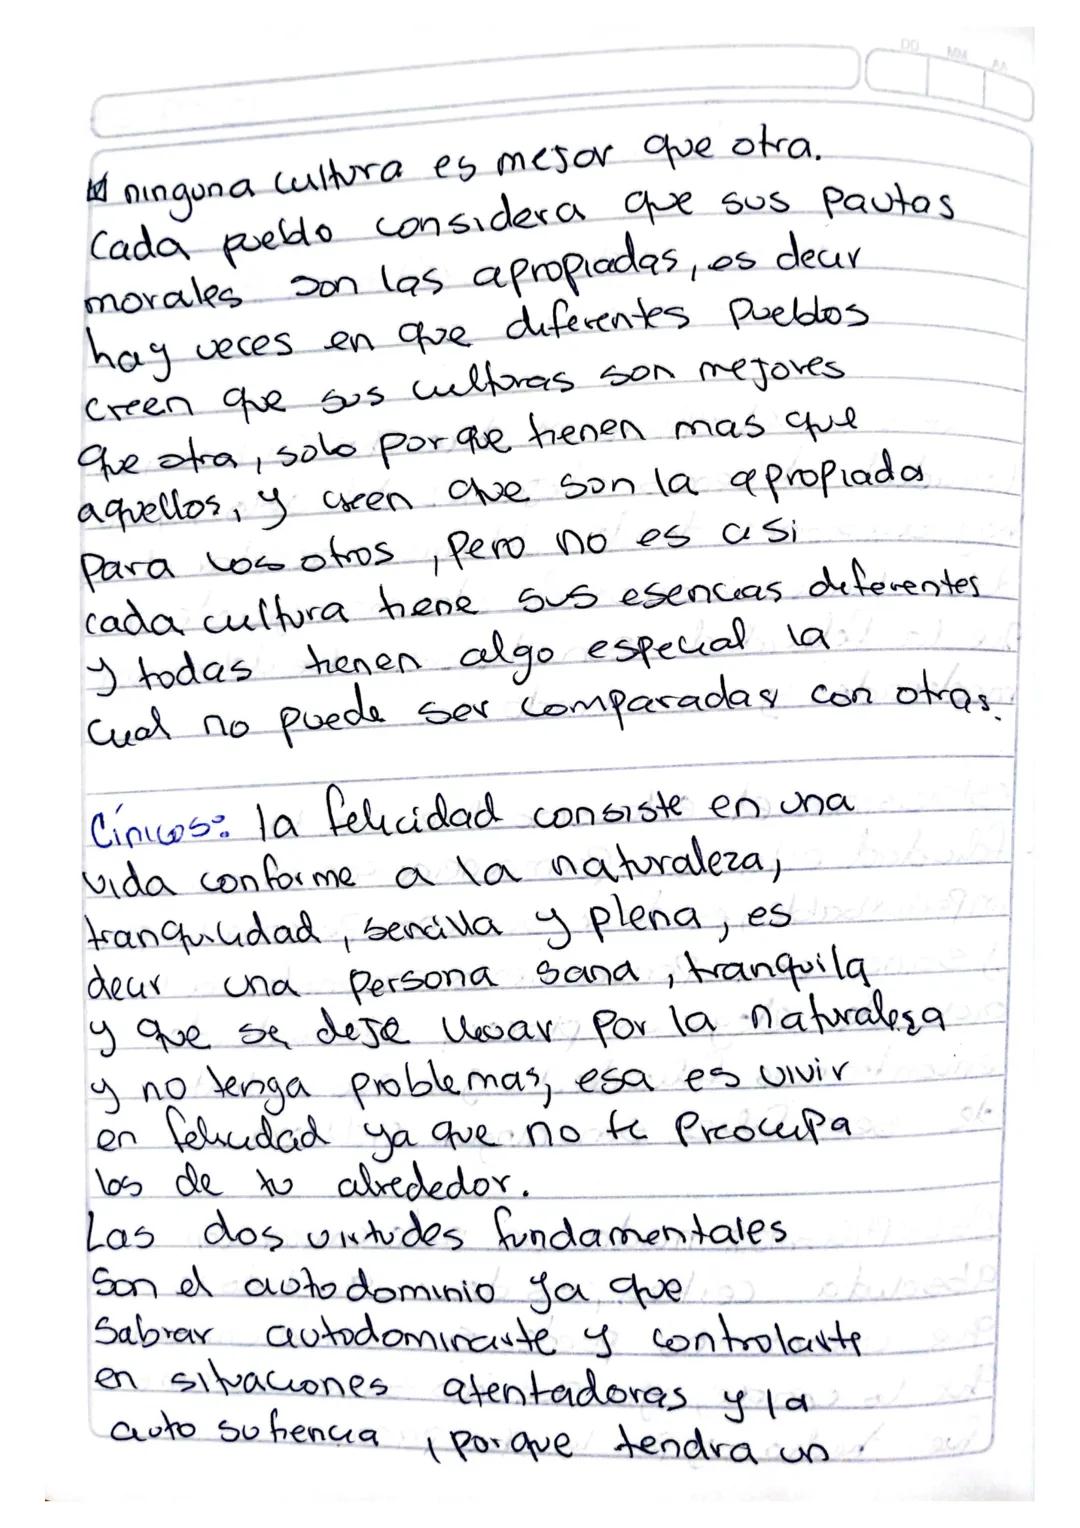 DD MM AA
ninguna cultura es mejor que otra.
Cada pueblo considera que sus pautas
morales son las apropiadas, es decir
hay veces en que diferentes Pueblos
creen que sus culturas son mejores
que otra, solo por que tienen mas que
aquellos, y creen que son la apropiada
Para los otros, Pero no es asi
cada cultura tiene sus esencias diferentes
y todas tienen algo especial la
cual no puede ser comparadas con otras.
Cínicos: la felicidad consiste en una
vida conforme a la naturaleza,
tranquilidad, sencilla y plena, es
decir una persona sana, tranquila
y que se deje llevar por la naturaleza
y no tenga problemas, esa es vivir
en felicidad ya que no te Preocupa
los de tu alrededor.
Las dos virtudes fundamentales
Son el autodominio ya que
Sabrar autodominarte y controlarte
en situaciones atentadoras y la
auto sufiencia, porque tendra un